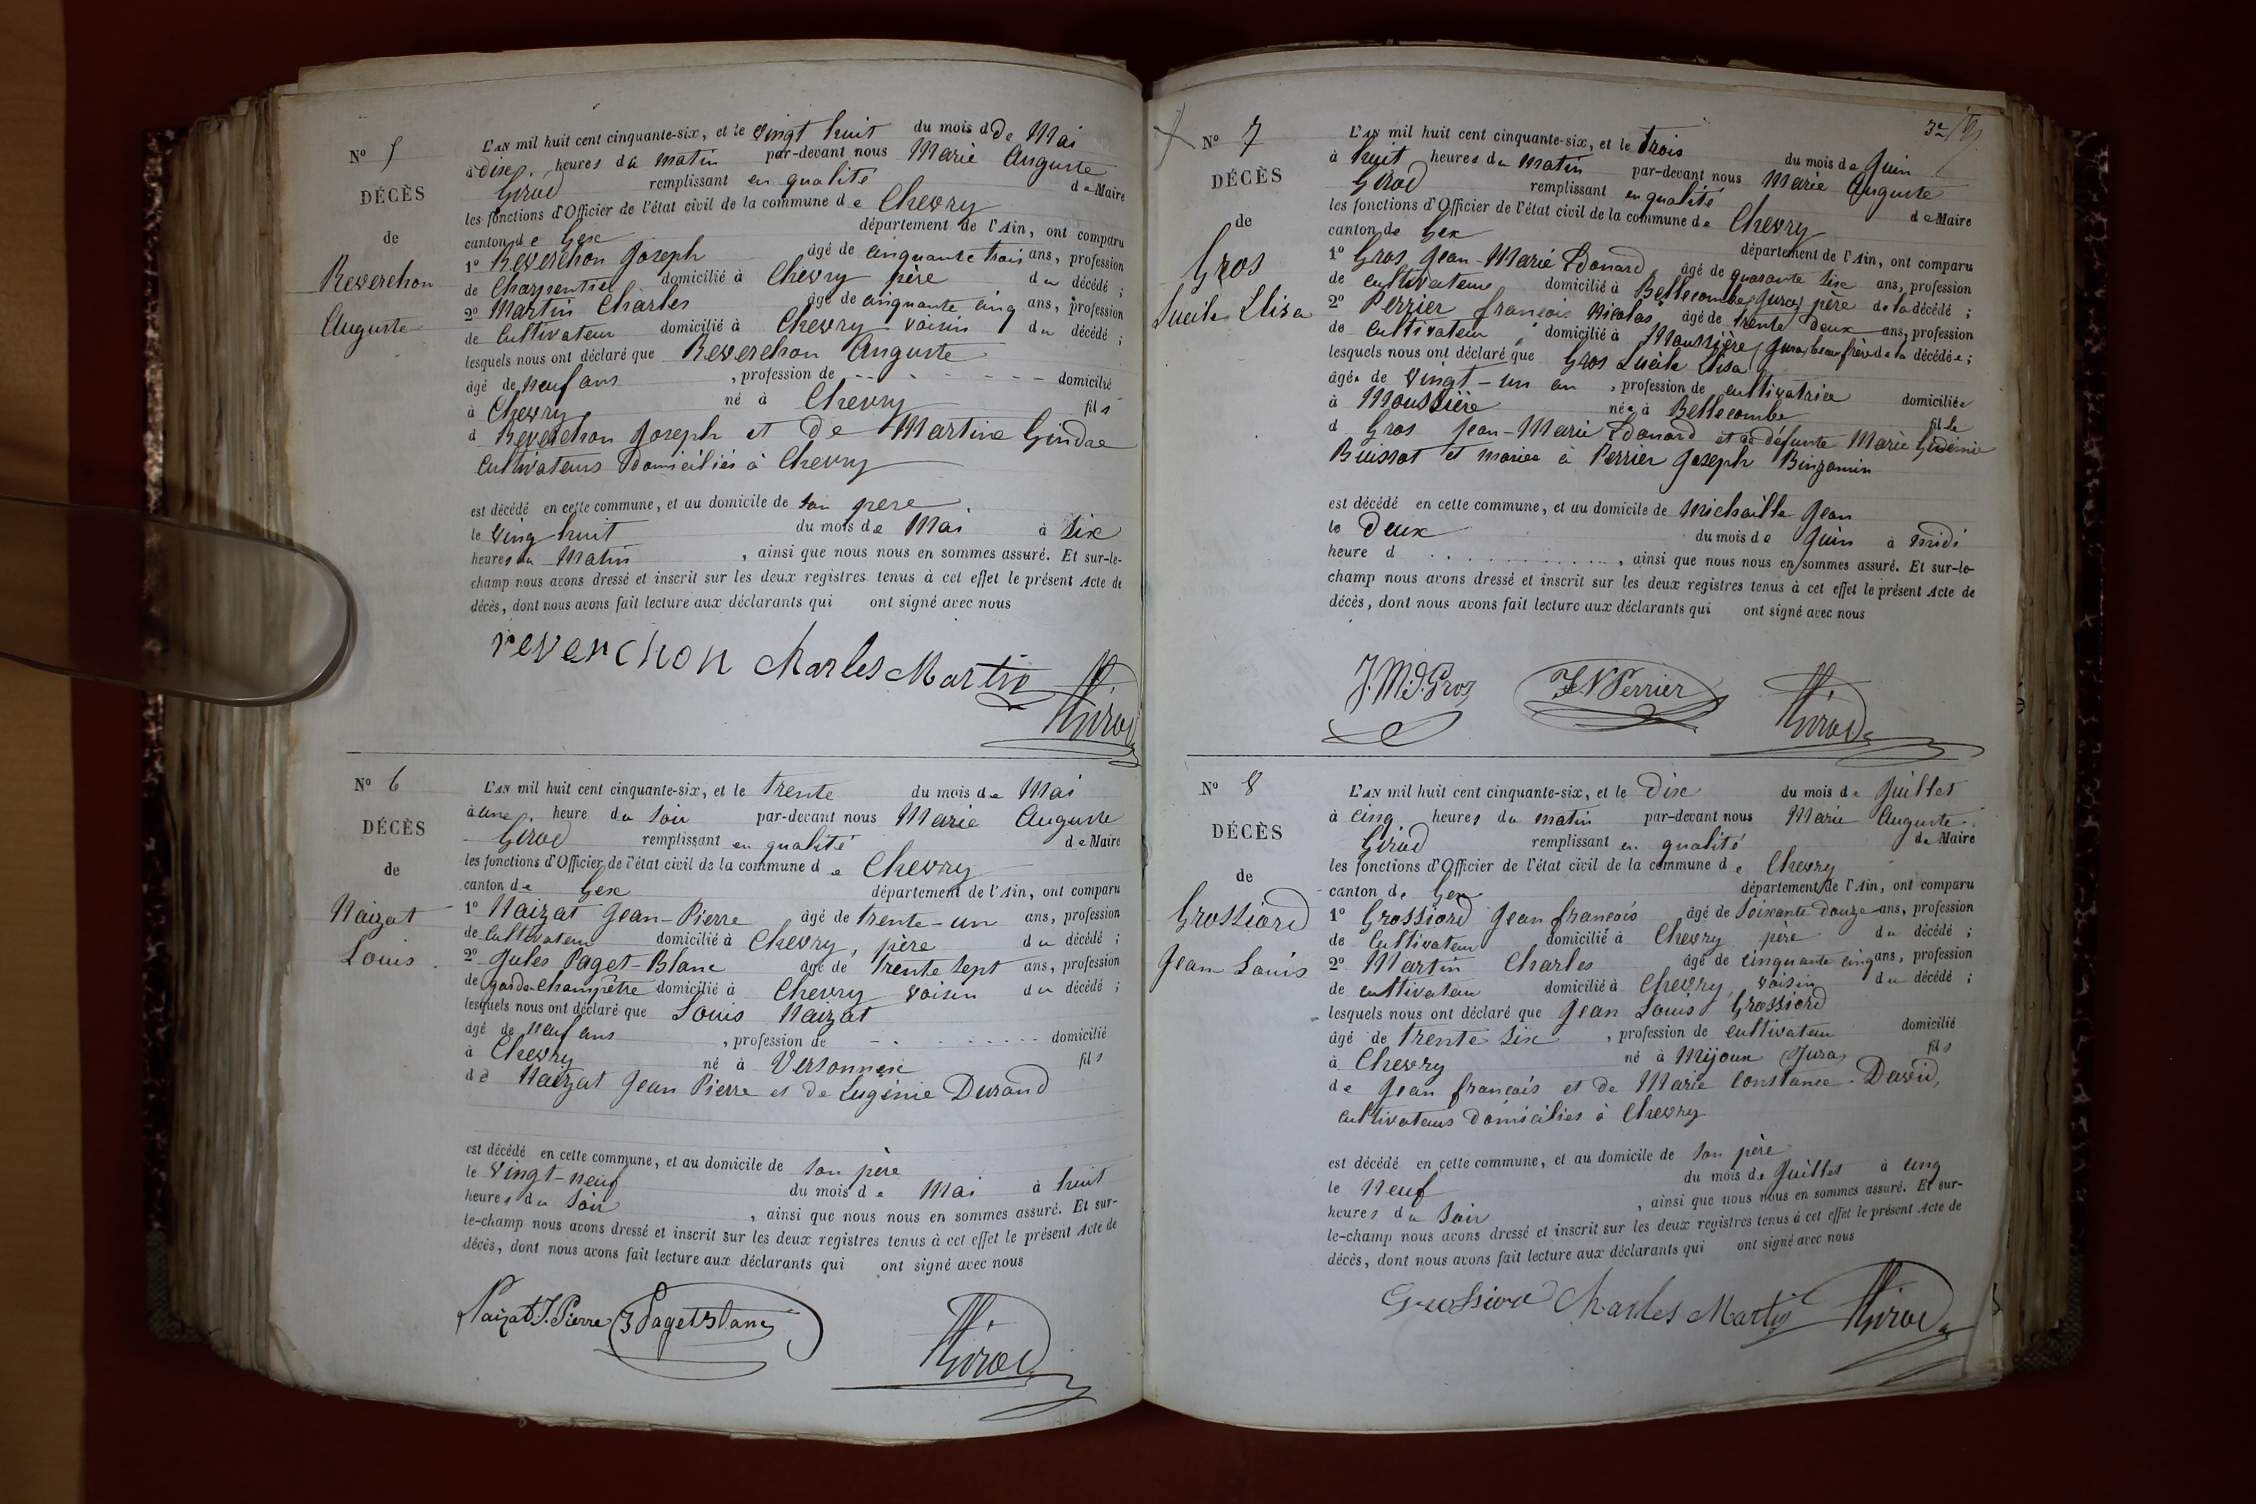 N° 5
DÉCÈS
de
Reverchon
Auguste
L'AN mil huit cent cinquante-six, et le vingt huit du mois de Mai
à dix heures du matin par-devant nous Marie Auguste
Girod remplissant en qualité de Maire
les fonctions d'Officier de l'état civil de la commune de Chevry
canton de Gex département de l'Ain, ont comparu
1° Reverchon Joseph âgé de cinquante trois ans, profession
de Charpentier domicilié à Chevry père du décédé ;
2° Martin Charles âgé de cinquante cinq ans, profession
de Cultivateur domicilié à Chevry voisin du décédé ;
lesquels nous ont déclaré que Reverchon Auguste
âgé de neuf ans , profession de - - - - - - - domicilié
à Chevry né à Chevry fils
d Reverchon Joseph et De Martine Gindre
Cultivateurs Domiciliés à Chevry
est décédé en cette commune, et au domicile de son père
le ving huit du mois de Mai à six
heures du Matin , ainsi que nous nous en sommes assuré. Et sur-le-
champ nous avons dressé et inscrit sur les deux registres tenus à cet effet le présent Acte de
décès, dont nous avons fait lecture aux déclarants qui ont signé avec nous
reverchon Charles Martin Girod
N° 6
DÉCÈS
de
Naizat
Louis
L'AN mil huit cent cinquante-six, et le trente du mois de Mai
à une heure du soir par-devant nous Marie Auguste
Girod remplissant en qualité de Maire
les fonctions d'Officier de l'état civil de la commune de Chevry
canton de Gex département de l'Ain, ont comparu
1° Naizat Jean-Pierre âgé de trente-un ans, profession
de Cultivateur domicilié à Chevry, père du décédé ;
2° Jules Paget-Blanc âgé de trente sept ans, profession
de garde champêtre domicilié à Chevry voisin du décédé ;
lesquels nous ont déclaré que Louis Naizat
âgé de neuf ans , profession de - - - - - - - domicilié
à Chevry né à Versonnex fils
de Naizat Jean Pierre et de Eugénie Durand
est décédé en cette commune, et au domicile de son père
le vingt-neuf du mois de Mai à huit
heures du soir , ainsi que nous nous en sommes assuré. Et sur-
le-champ nous avons dressé et inscrit sur les deux registres tenus à cet effet le présent Acte de
décès, dont nous avons fait lecture aux déclarants qui ont signé avec nous
Naizat J. Pierre J Paget Blanc Girod
N° 7
DÉCÈS
de
Gros
Lucile Elisa
L'AN mil huit cent cinquante-six, et le trois du mois de Juin
à huit heures du matin par-devant nous Marie Auguste
Girod remplissant en qualité de Maire
les fonctions d'Officier de l'état civil de la commune de Chevry
canton de Gex département de l'Ain, ont comparu
1° Gros Jean-Marie Edouard âgé de quarante six ans, profession
de cultivateur domicilié à Bellecombe (Jura) père de la décédé ;
2° Perrier françois Nicolas âgé de trente deux ans, profession
de cultivateur domicilié à Moussière (Jura) beau frère de la décédée ;
lesquels nous ont déclaré que Gros Lucile Elisa
âgée de vingt-un an , profession de cultivatrice domiciliée
à Moussière née à Bellecombe fille
d Gros Jean-Marie Edouard et de défunte Marie
Buissot et mariée à Perrier Joseph Binjamin
est décédé en cette commune, et au domicile de Michaille Jean
le Deux du mois de Juin à Midi
heure d . . . . . . . . . . , ainsi que nous nous en sommes assuré. Et sur-le-
champ nous avons dressé et inscrit sur les deux registres tenus à cet effet le présent Acte de
décès, dont nous avons fait lecture aux déclarants qui ont signé avec nous
J.M.E. Gros F N Perrier Girod
N° 8
DÉCÈS
de
Grossiord
Jean-Louis
L'AN mil huit cent cinquante-six, et le Dix du mois de Juillet
à cinq heures du matin par-devant nous Marie Auguste
Girod remplissant en qualité de Maire
les fonctions d'Officier de l'état civil de la commune de Chevry
canton de Gex département de l'Ain, ont comparu
1° Grossiord Jean françois âgé de soixante douze ans, profession
de Cultivateur domicilié à Chevry père du décédé ;
2° Martin Charles âgé de cinquante cinq ans, profession
de cultivateur domicilié à Chevry, voisin du décédé ;
lesquels nous ont déclaré que Jean Louis Grossiord
âgé de trente six , profession de cultivateur domicilié
à Chevry né à Mijoux (Jura) fils
de Jean françois et de Marie Constance David,
cultivateurs domiciliés à Chevry
est décédé en cette commune, et au domicile de son père
le Neuf du mois de Juillet à cinq
heures du soir , ainsi que nous nous en sommes assuré. Et sur-
le-champ nous avons dressé et inscrit sur les deux registres tenus à cet effet le présent Acte de
décès, dont nous avons fait lecture aux déclarants qui ont signé avec nous
Grossiord Charles Martin Girod